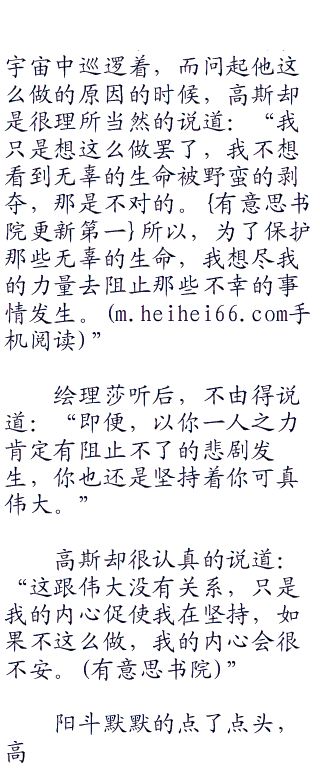 宇宙中巡逻着，而问起他这
么做的原因的时候，高斯却
是很理所当然的说道：“我
只是想这么做罢了，我不想
看到无辜的生命被野蛮的剥
夺，那是不对的。{有意思书
院更新第一}所以，为了保护
那些无辜的生命，我想尽我
的力量去阻止那些不幸的事
情发生。(m.heihei66.com手
机阅读)”
绘理莎听后，不由得说
道：“即便，以你一人之力
肯定有阻止不了的悲剧发
生，你也还是坚持着你可真
伟大。”
高斯却很认真的说道：
“这跟伟大没有关系，只是
我的内心促使我在坚持，如
果不这么做，我的内心会很
不安。(有意思书院)”
阳斗默默的点了点头，
高